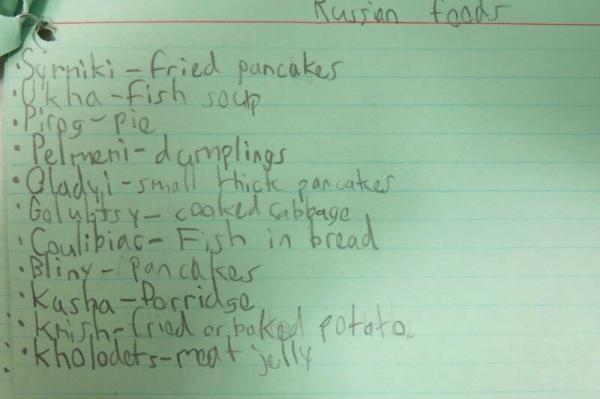 Russian foods
• Syrniki - fried pancakes
• Ukha - fish soup
• Pirog - pie
• Pelmeni - dumplings
• Oladyi - small thick pancakes
• Golubtsy - cooked cabbage
• Coulibiac - Fish in bread
• Bliny - Pancakes
• Kasha - Porridge
• Knish - fried or baked potato
• Kholodets - meat jelly